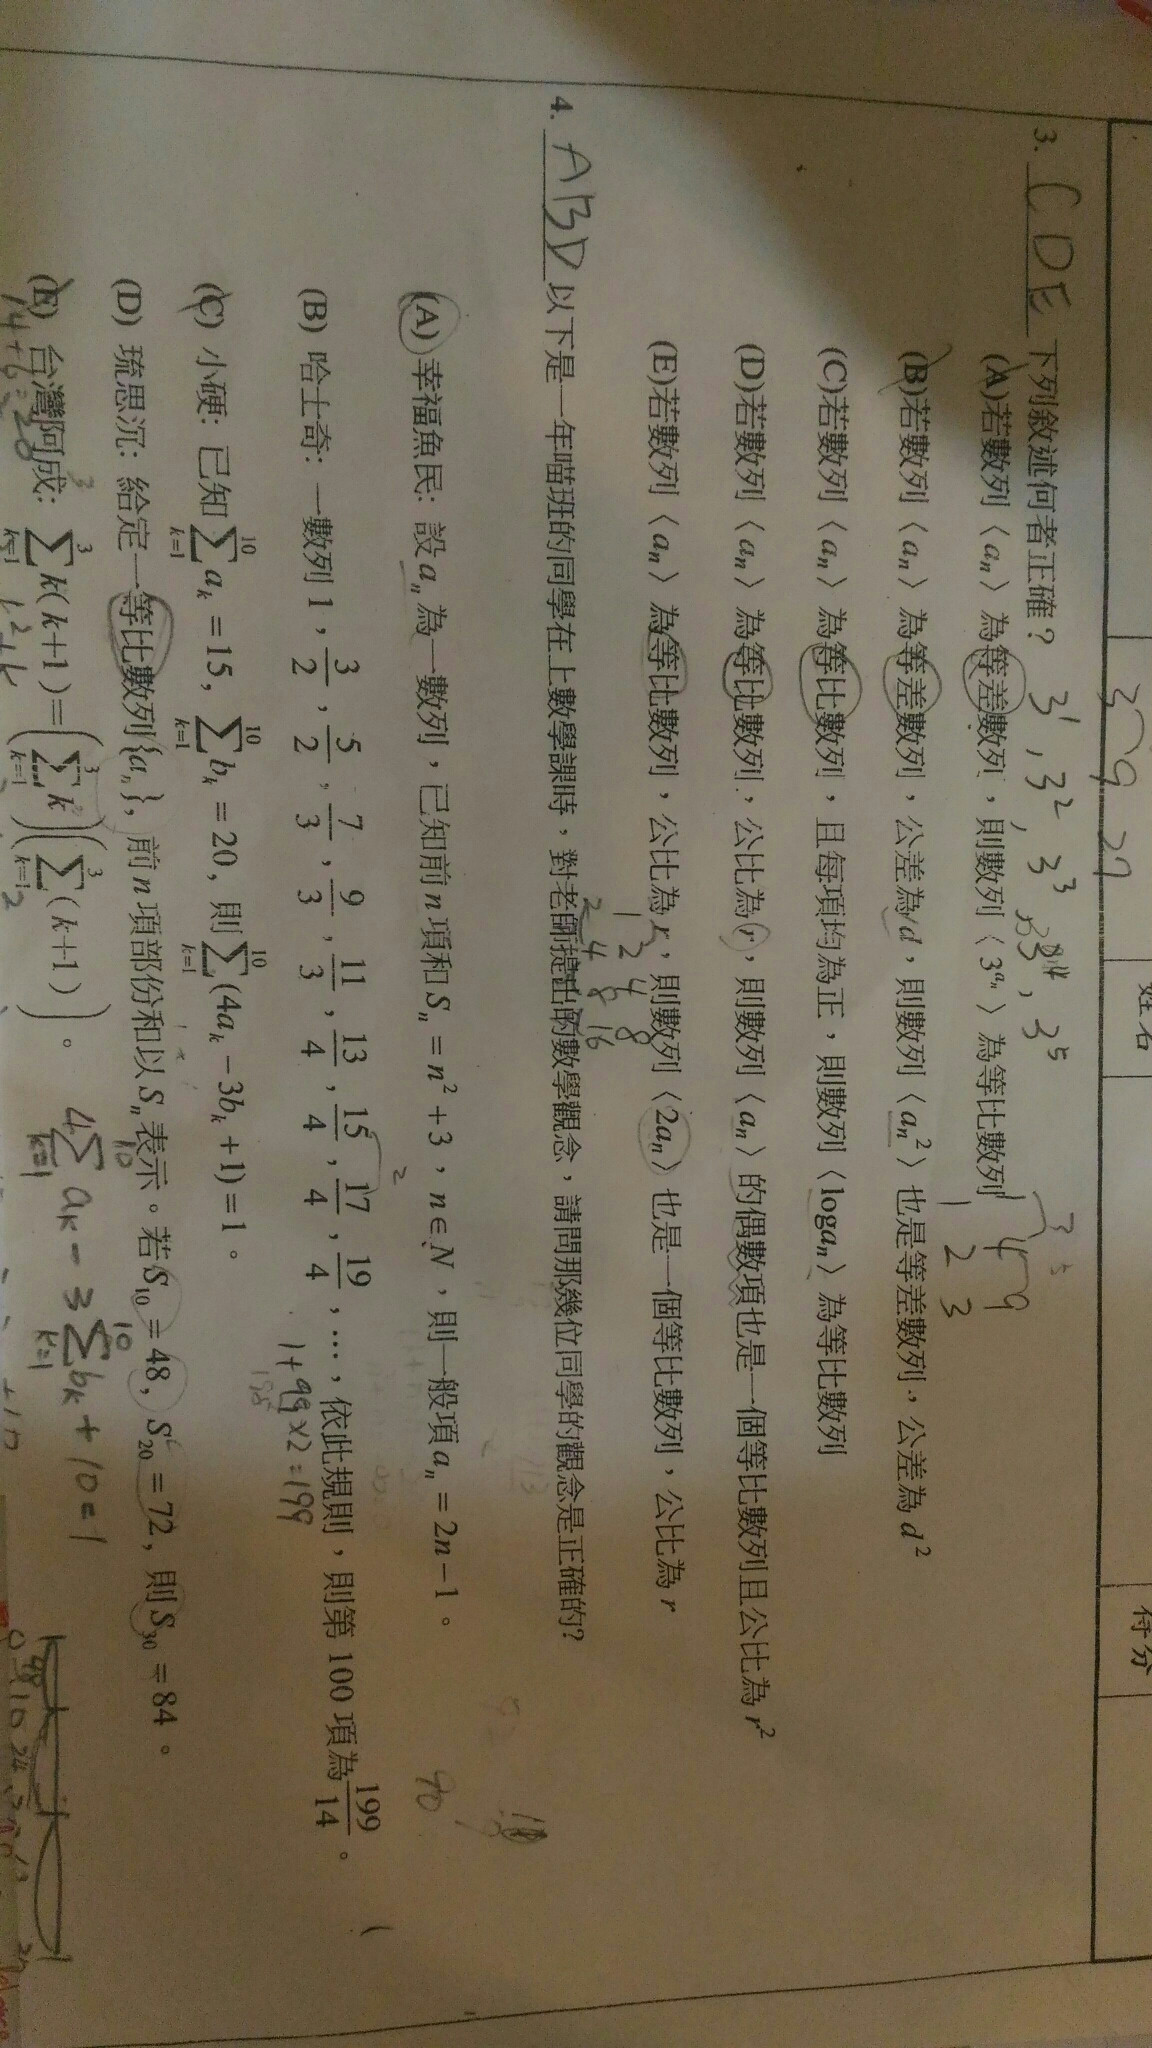 姓名
得分
3 9 27
3¹, 3², 3³, 3⁴, 3⁵
3. CDE 下列敘述何者正確?
(A)若數列〈aₙ〉為等差數列,則數列〈3^(aₙ)〉為等比數列
(B)若數列〈aₙ〉為等差數列,公差為d,則數列〈aₙ²〉也是等差數列,公差為d²
1 4 9
1 2 3
(C)若數列〈aₙ〉為等比數列,且每項均為正,則數列〈logaₙ〉為等比數列
(D)若數列〈aₙ〉為等比數列,公比為r,則數列〈aₙ〉的偶數項也是一個等比數列且公比為r²
(E)若數列〈aₙ〉為等比數列,公比為r,則數列〈2aₙ〉也是一個等比數列,公比為r
1 2 4 8
2 4 8 16
4. ABD 以下是一年喵班的同學在上數學課時,對老師提出的數學觀念,請問那幾位同學的觀念是正確的?
(A) 幸福魚民:設aₙ為一數列,已知前n項和Sₙ=n²+3,n∈N,則一般項aₙ=2n−1。
(B) 哈士奇:一數列1, 3/2, 5/2, 7/3, 9/3, 11/3, 13/4, 15/4, 17/4, 19/4, …,依此規則,則第100項為199/14。
1+99×2=199
(C) 小硬:已知∑_{k=1}^{10} aₖ=15, ∑_{k=1}^{10} bₖ=20,則∑_{k=1}^{10}(4aₖ−3bₖ+1)=1。
(D) 琉思沉:給定一等比數列{aₙ},前n項部份和以Sₙ表示。若S₁₀=48, S₂₀=72,則S₃₀=84。
4∑_{k=1}^{10} aₖ − 3∑_{k=1}^{10} bₖ + 10 = 1
(E) 台灣阿成:∑_{k=1}^{3} k(k+1)=(∑_{k=1}^{3} k)(∑_{k=1}^{3}(k+1))。
14+6=20
k²+k